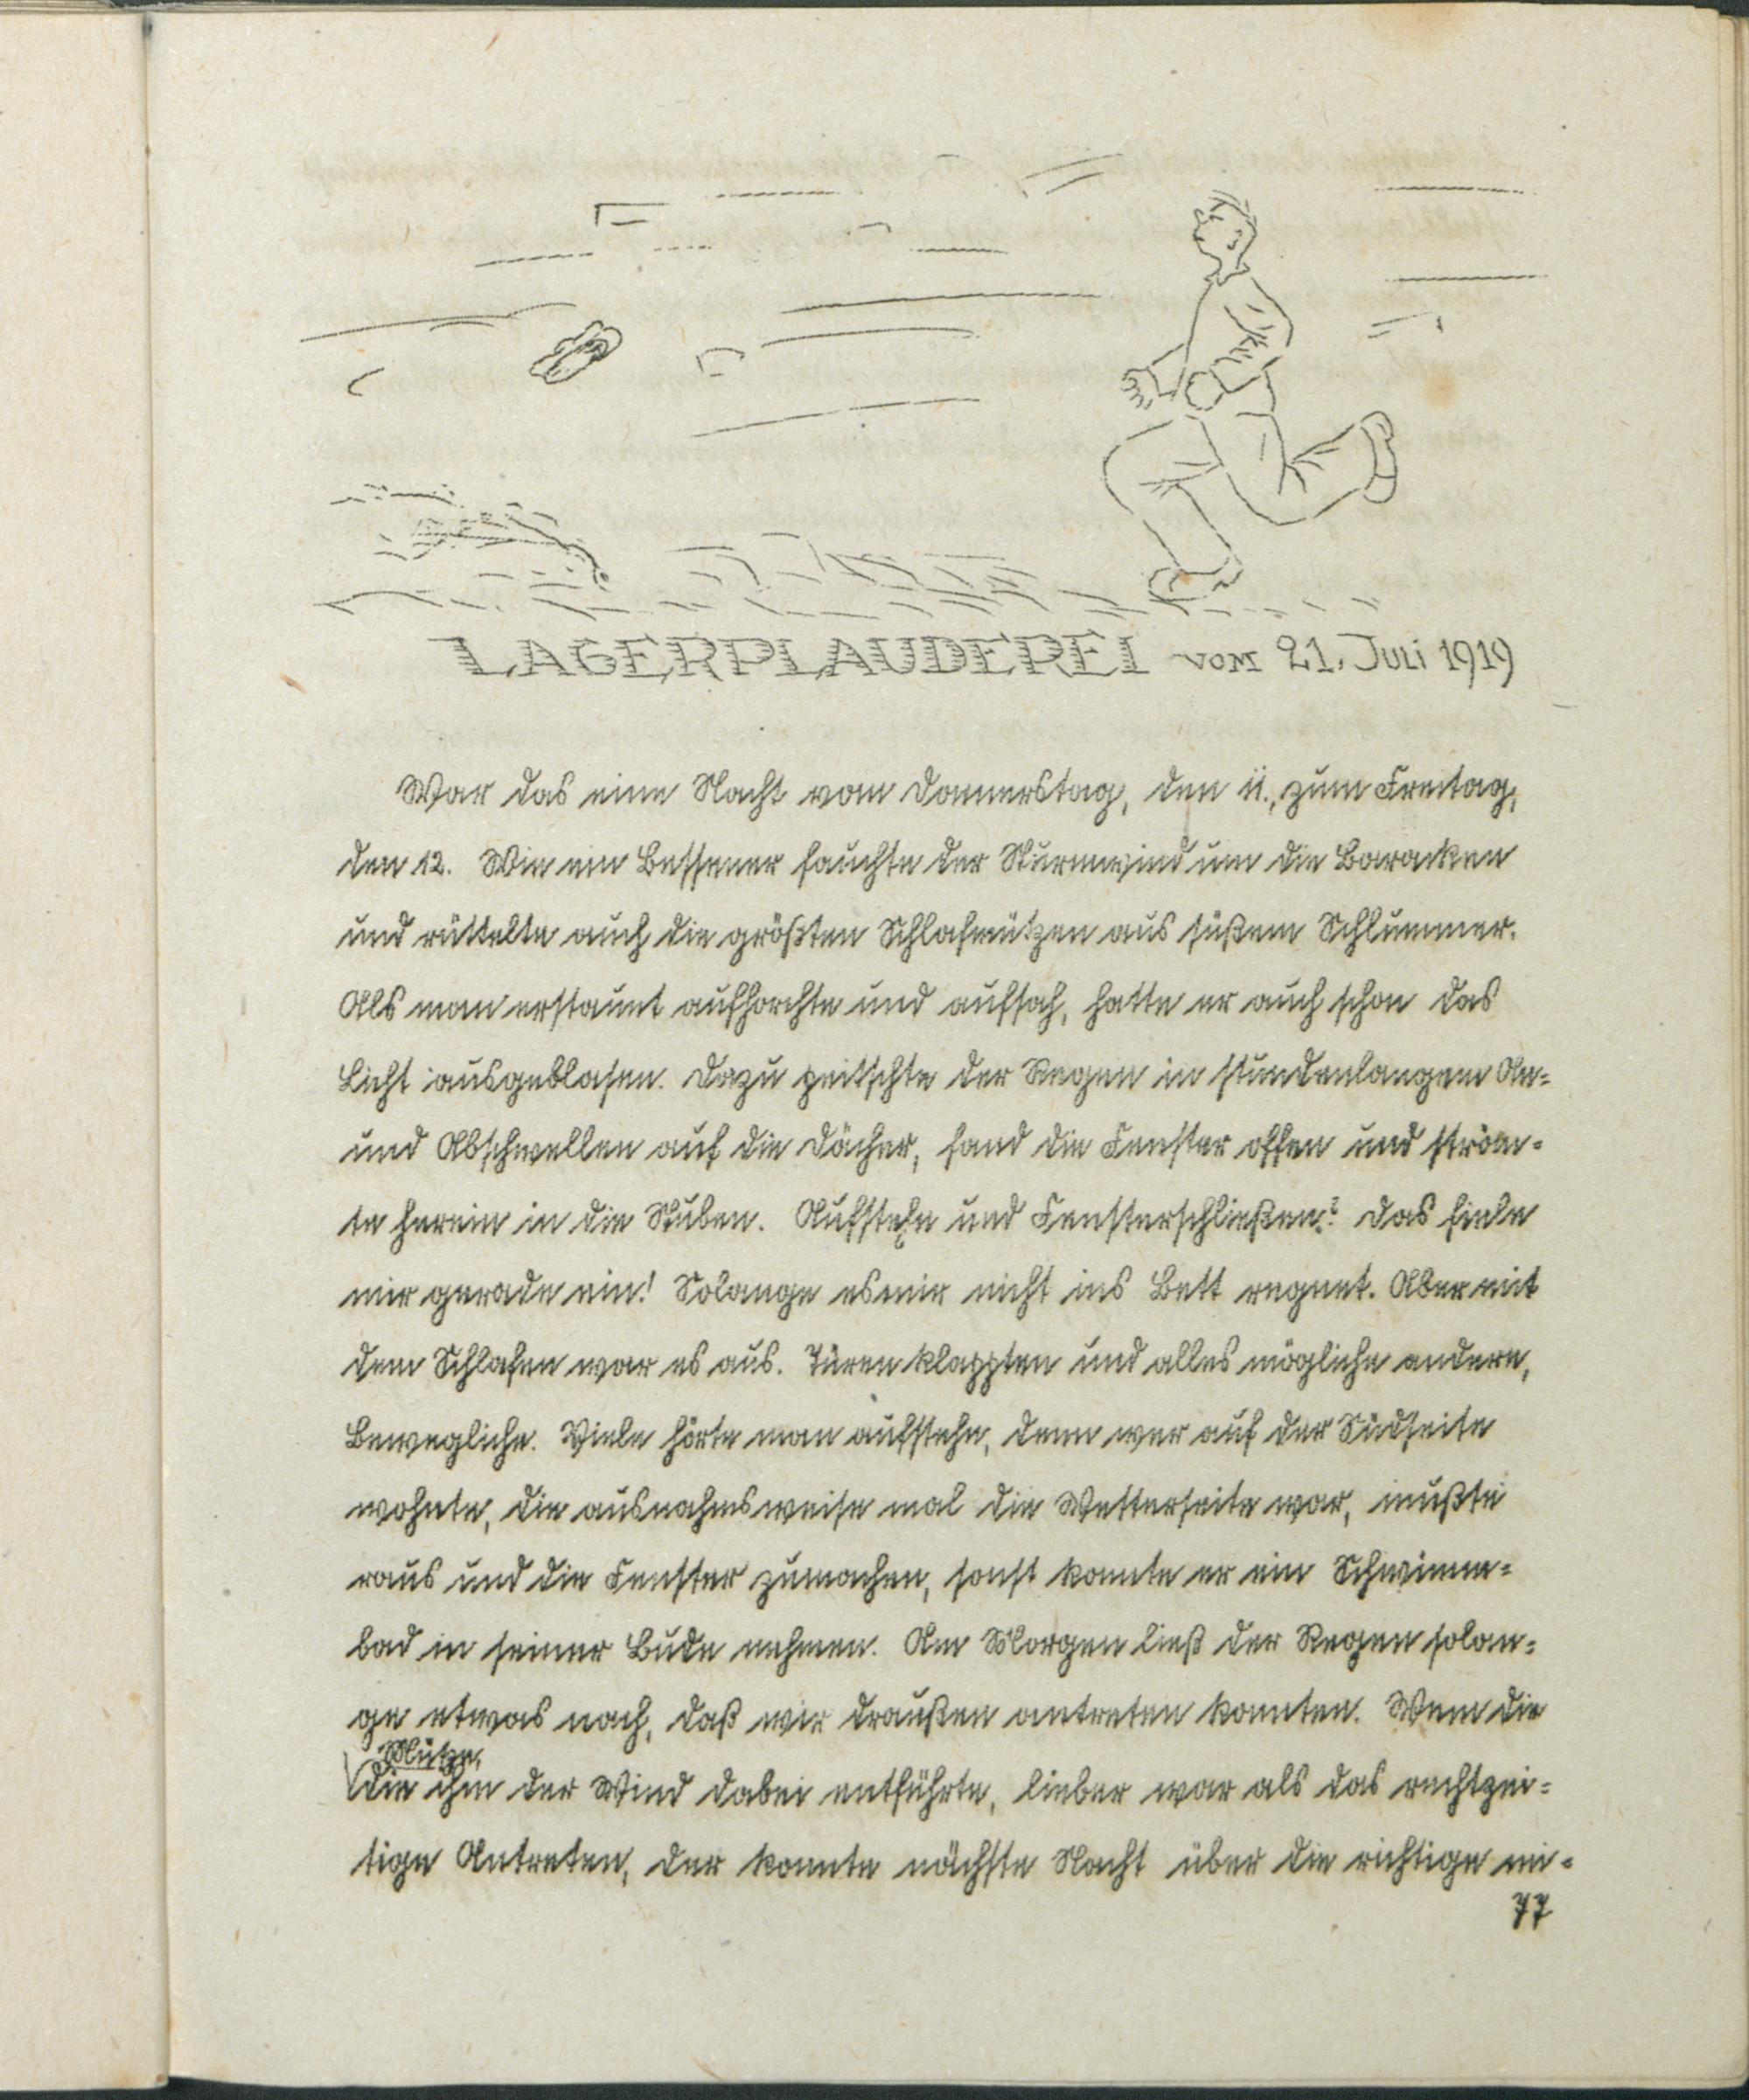 LAGERPLAUDEREI vom 21. Juli 1919
War das eine Nacht vom Donnerstag, den 11., zum Freitag,
den 12. Wie ein Bessener fauchte der Sturmwind um die Baracken
und rüttelte auch die größten Schlafmützen aus süßem Schlummer.
Als man erstaunt aufhorchte und aufsah, hatte er auch schon das
Licht ausgeblasen. Dazu peitschte der Regen in stundenlangem An-
und Abschwellen auf die Dächer, fand die Fenster offen und ström-
te herein in die Stuben. Aufstehn und Fensterschließen? Das fiele
mir gerade ein! Solange es mir nicht ins Bett regnet. Aber mit
dem Schlafen war es aus. Türen klappten und alles mögliche andere,
Bewegliche. Viele hörte man aufstehn, denn wer auf der Südseite
wohnte, die ausnahmsweise mal die Wetterseite war, mußte
raus und die Fenster zumachen, sonst konnte er ein Schwimm-
bad in seiner Bude nehmen. Am Morgen ließ der Regen solan-
ge etwas nach, daß wir draußen antreten konnten. Wem die
Mütze,
die ihm der Wind dabei entführte, lieber war als das rechtzei-
tige Antreten, der konnte nächste Nacht über die richtige mi-
77